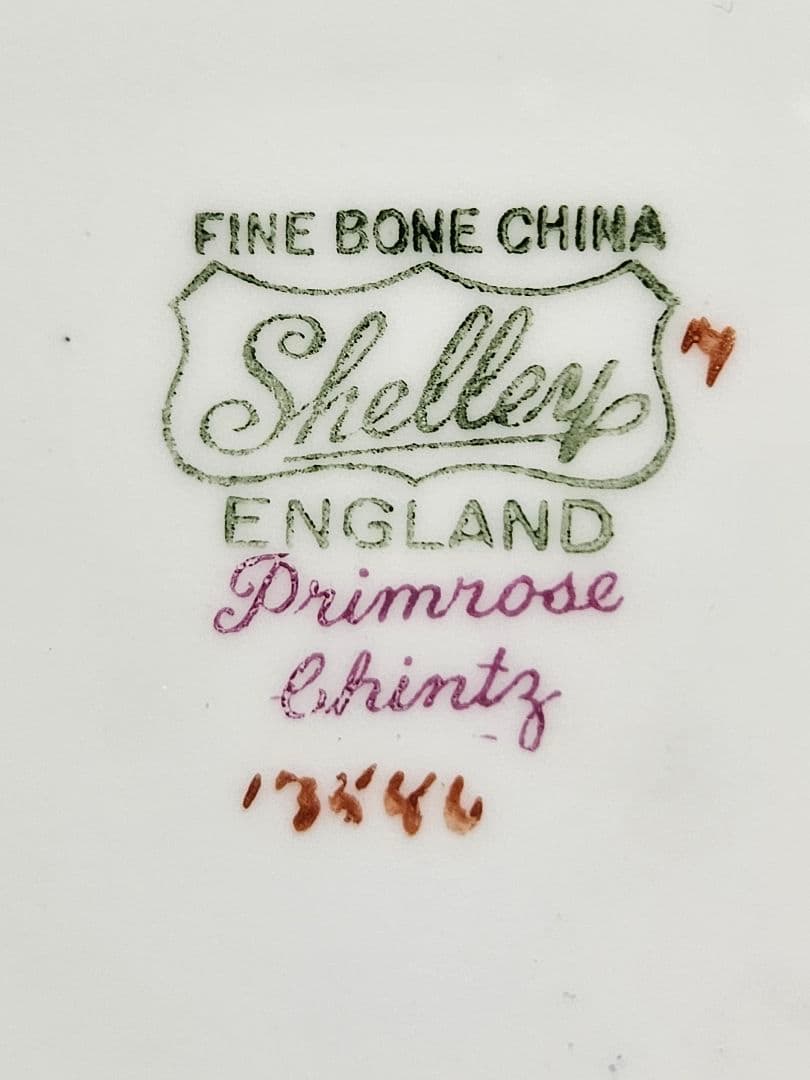 FINE BONE CHINA
Shelley
ENGLAND
Primrose
Chintz
13586